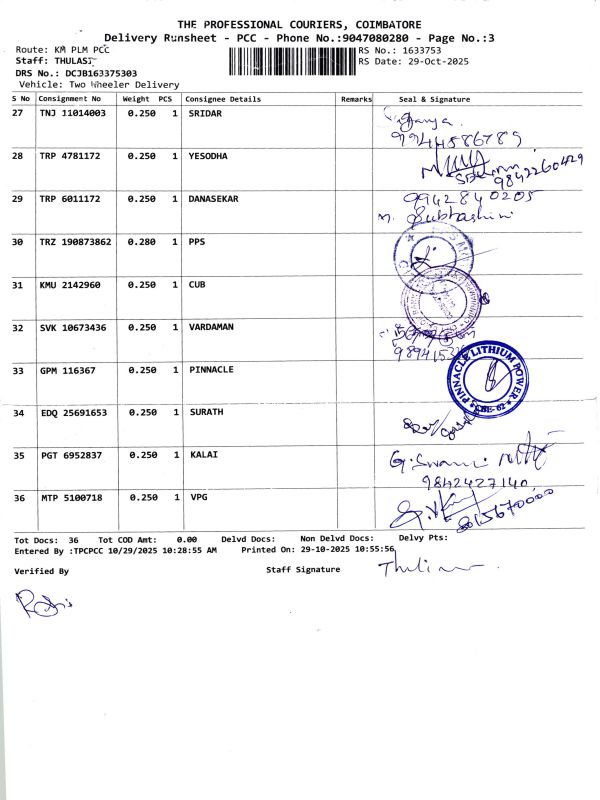 THE PROFESSIONAL COURIERS, COIMBATORE
Delivery Runsheet - PCC - Phone No.:9047080280 - Page No.:3
Route: KM PLM PCC
RS No.: 1633753
Staff: THULASI
RS Date: 29-Oct-2025
DRS No.: DCJB163375303
Vehicle: Two Wheeler Delivery
S No Consignment No Weight PCS Consignee Details Remarks Seal & Signature
27 TNJ 11014003 0.250 1 SRIDAR
9944586789
28 TRP 4781172 0.250 1 YESODHA
9842260429
29 TRP 6011172 0.250 1 DANASEKAR 9942840205
M. Subhashini
30 TRZ 190873862 0.280 1 PPS
31 KMU 2142960 0.250 1 CUB
32 SVK 10673436 0.250 1 VARDAMAN
33 GPM 116367 0.250 1 PINNACLE
PINNACLE LITHIUM POWER
CBE-62
34 EDQ 25691653 0.250 1 SURATH
35 PGT 6952837 0.250 1 KALAI
G. Swami
9842427140
36 MTP 5100718 0.250 1 VPG
8615670000
Tot Docs: 36 Tot COD Amt: 0.00 Delvd Docs: Non Delvd Docs: Delvy Pts:
Entered By :TPCPCC 10/29/2025 10:28:55 AM Printed On: 29-10-2025 10:55:56
Verified By Staff Signature